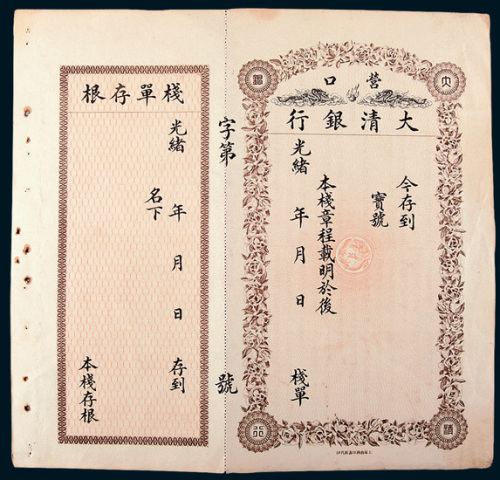 營口
大清銀行
今存到
寶號
本棧章程載明於後
光緒 年 月 日
棧單
字第 號
棧單存根
光緒 年 月 日 存到
名下
本棧存根
大
清
銀
行